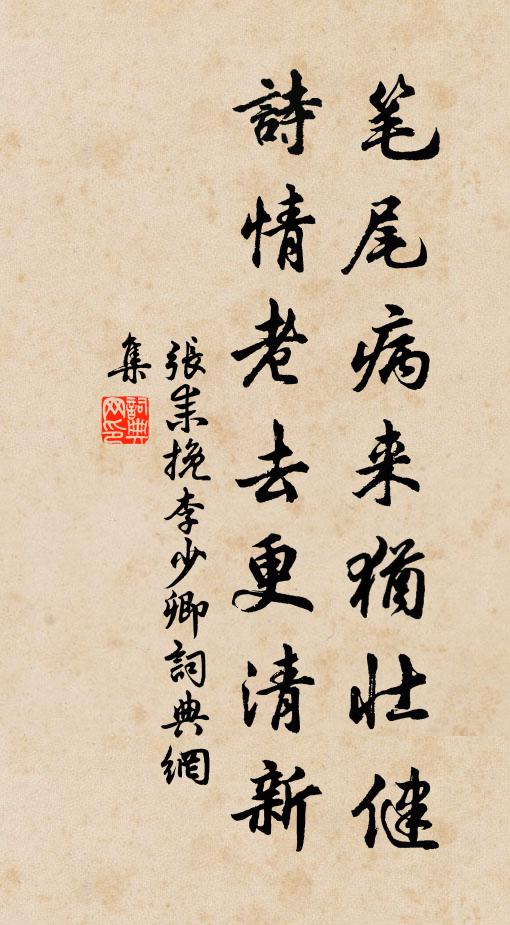 笔尾病来犹壮健
詩情老去更清新
張耒挽李少卿詞典網
集
詞典
网印